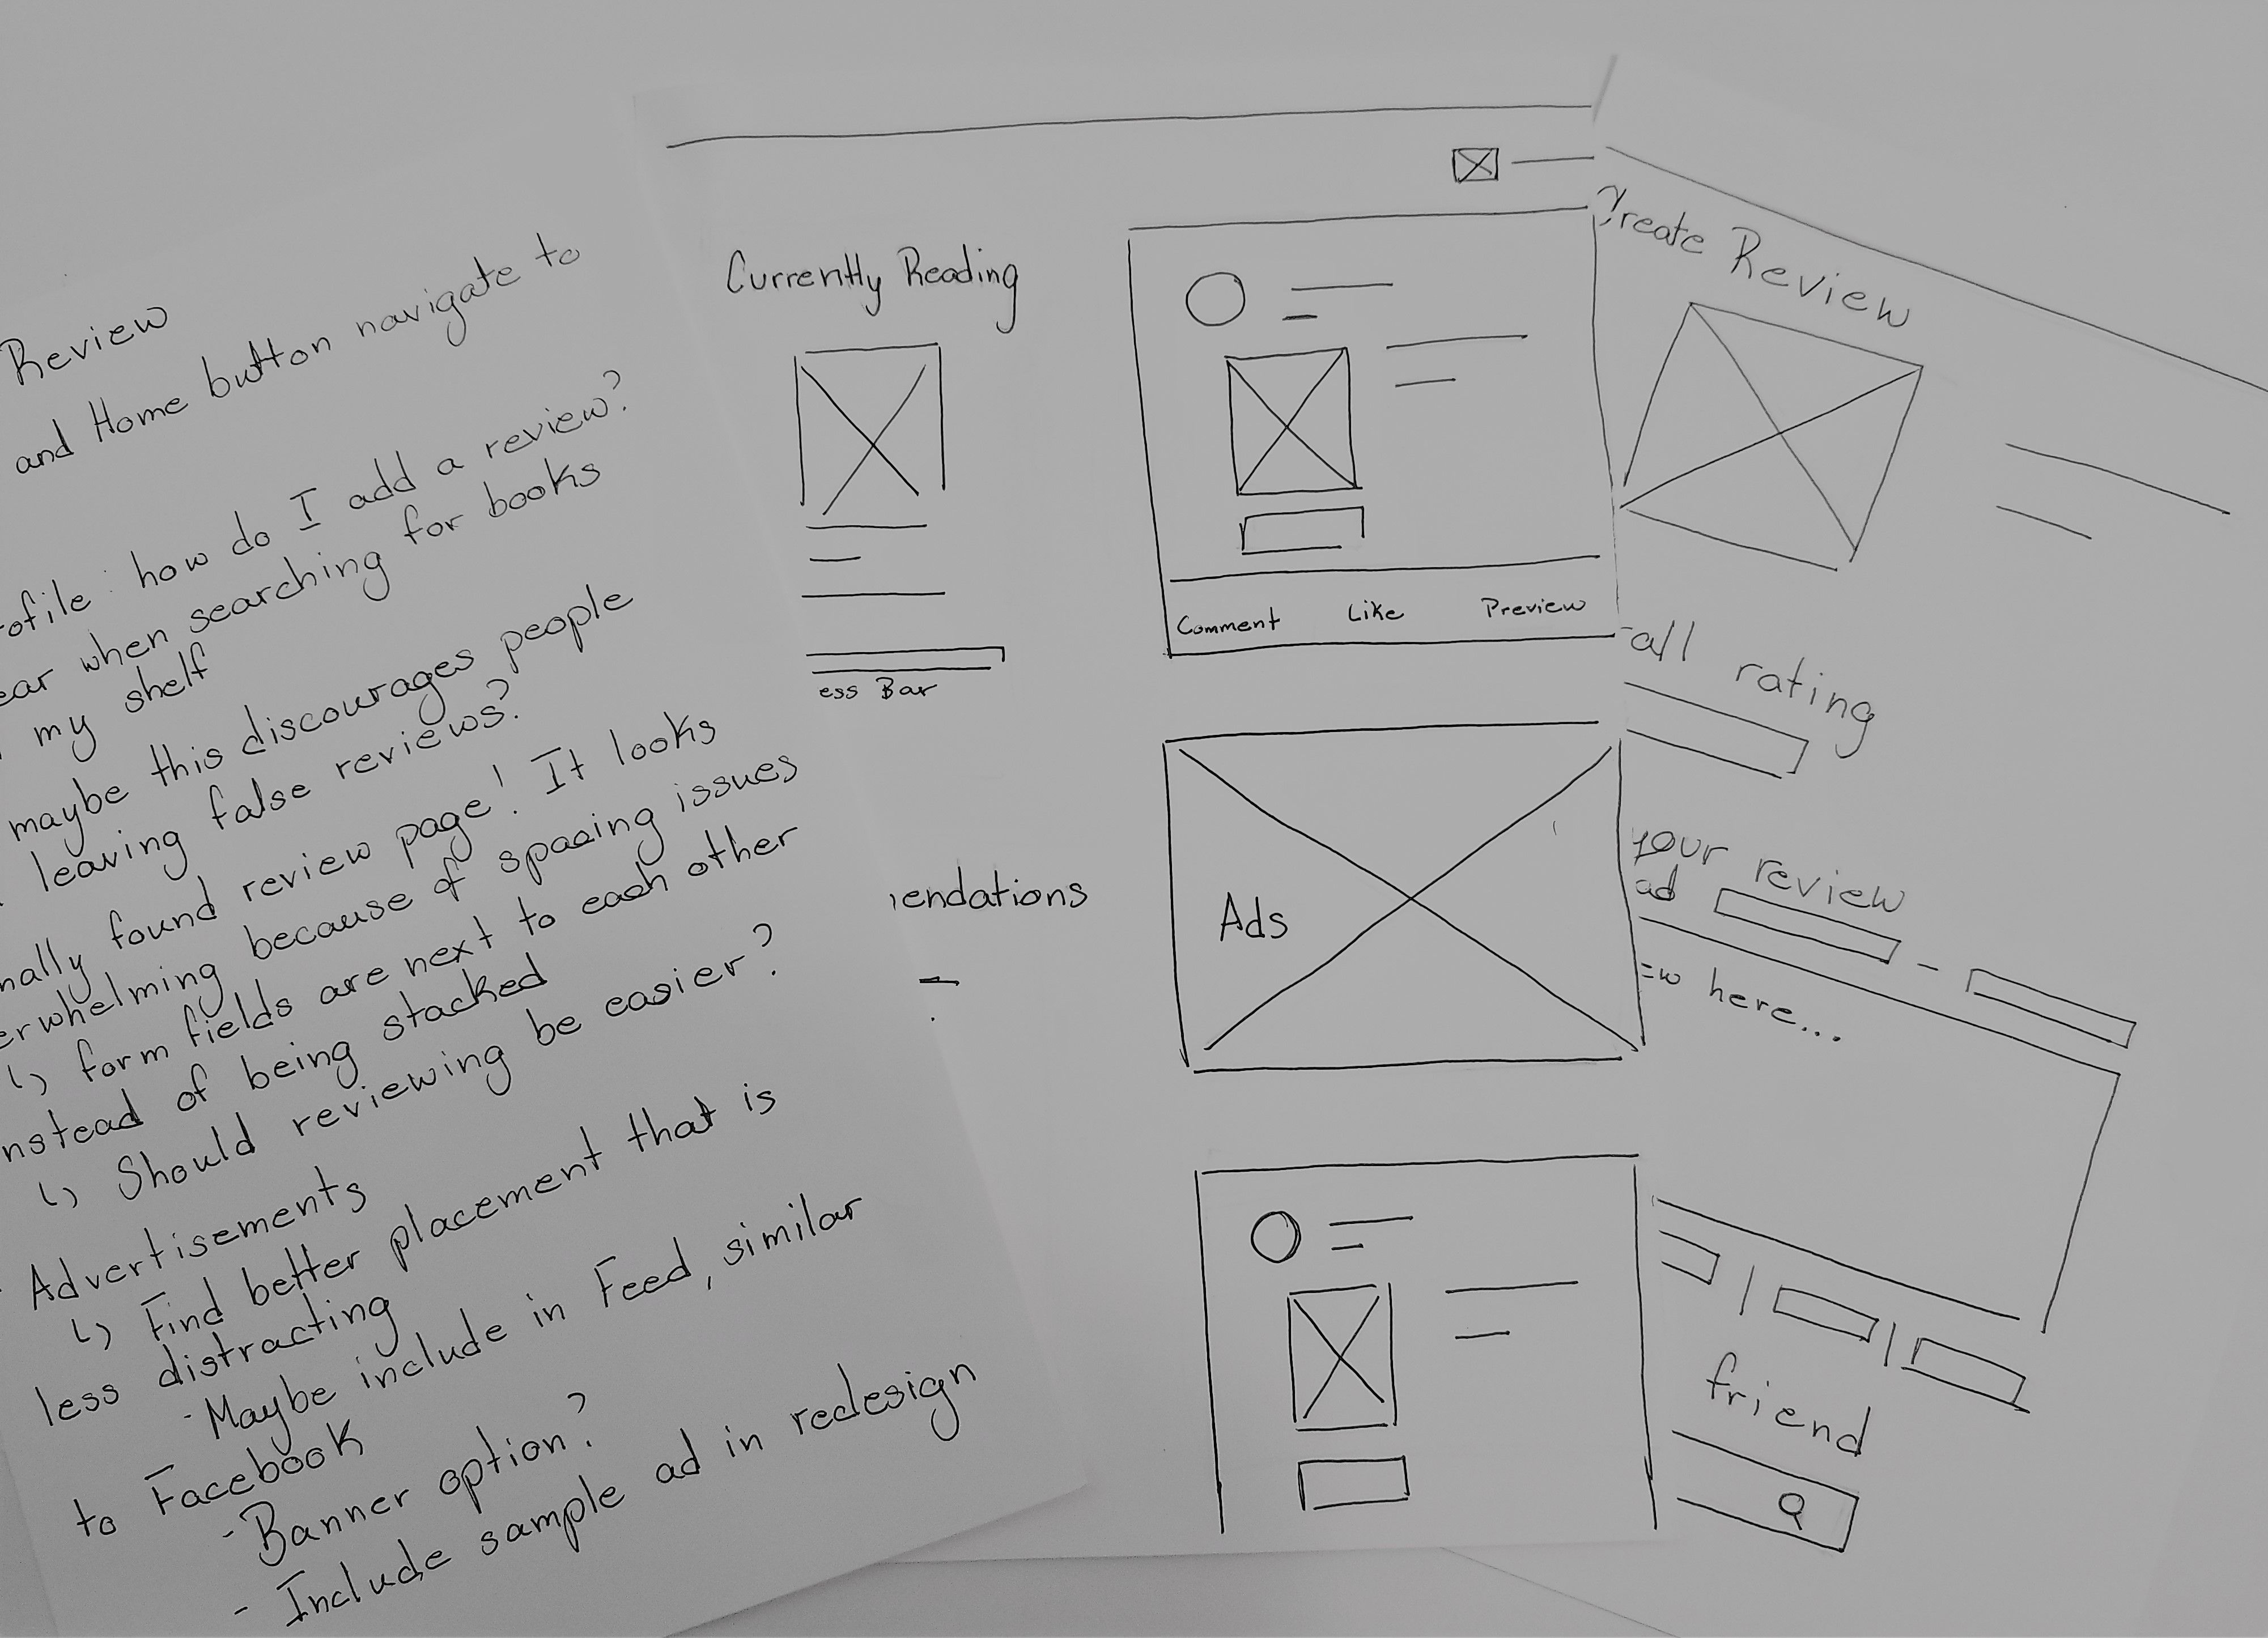 Review
and Home button navigate to
ofile: how do I add a review?
ear when searching for books
my shelf
maybe this discourages people
leaving false reviews?
nally found review page! It looks
erwhelming because of spacing issues
↳ form fields are next to each other
nstead of being stacked
↳ Should reviewing be easier?
Advertisements
↳ Find better placement that is
less distracting
- Maybe include in Feed, similar
to Facebook
- Banner option?
- Include sample ad in redesign
Currently Reading
ess Bar
endations
Comment Like Preview
Ads
Create Review
all rating
your review
ad
ew here...
friend